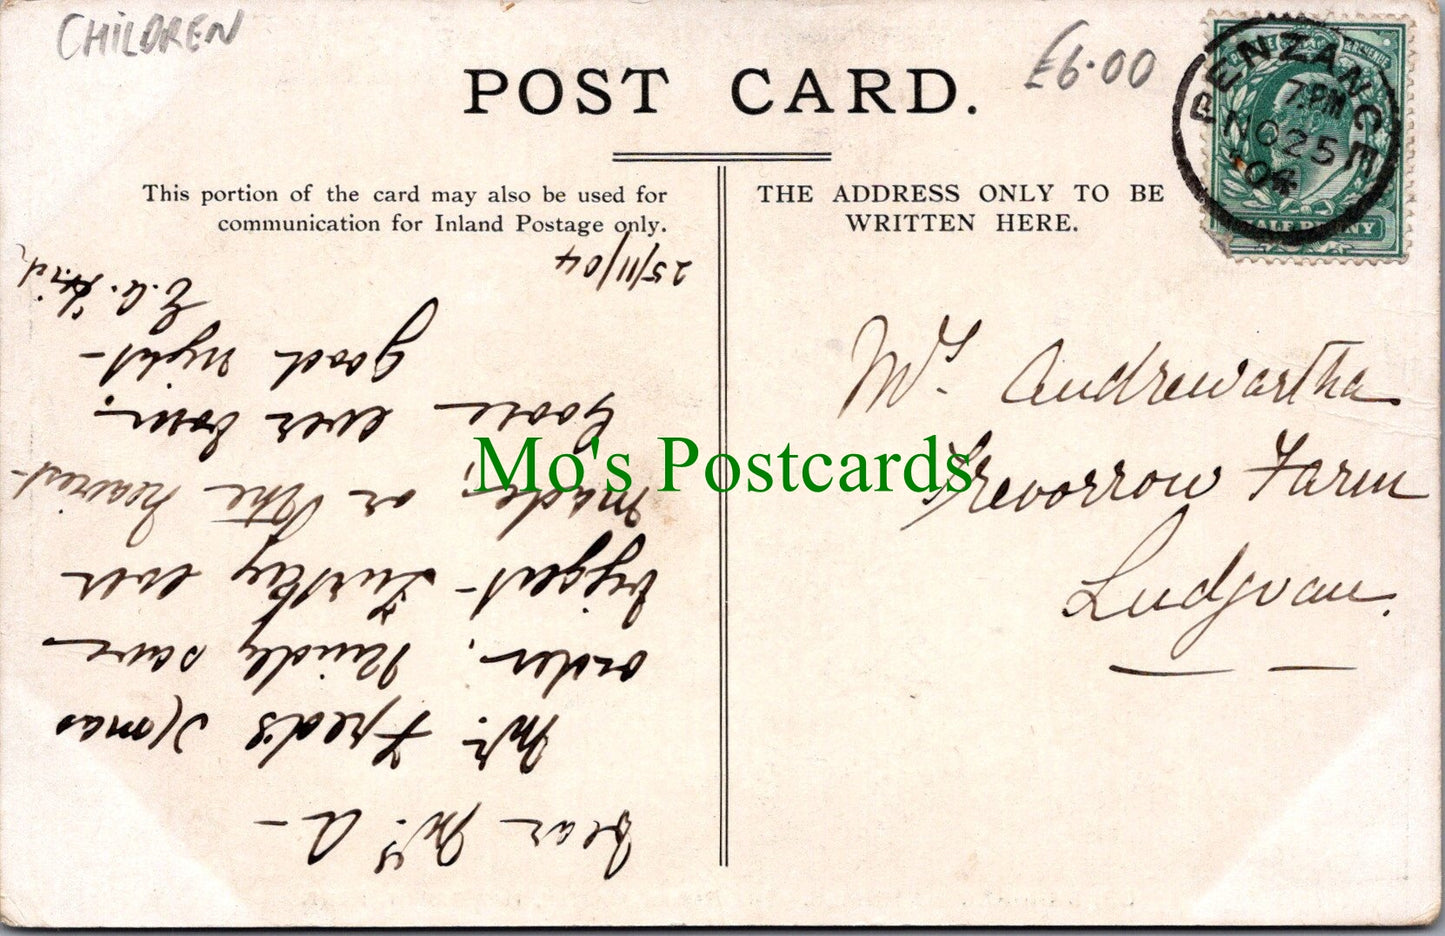 CHILDREN
£6.00
POST CARD.
PENZANCE
7.PM
NO 25
04
HALFPENNY
This portion of the card may also be used for
communication for Inland Postage only.
THE ADDRESS ONLY TO BE
WRITTEN HERE.
Mrs. Andrewartha
Trevorrow Farm
Ludgvan.
Mo's Postcards
Dear Mrs. A—
Mr. Fred's Xmas
order. Kindly save
biggest Turkey ever
made, or the heaviest
Goose ever born.
Good night—
E. A.
25/11/04